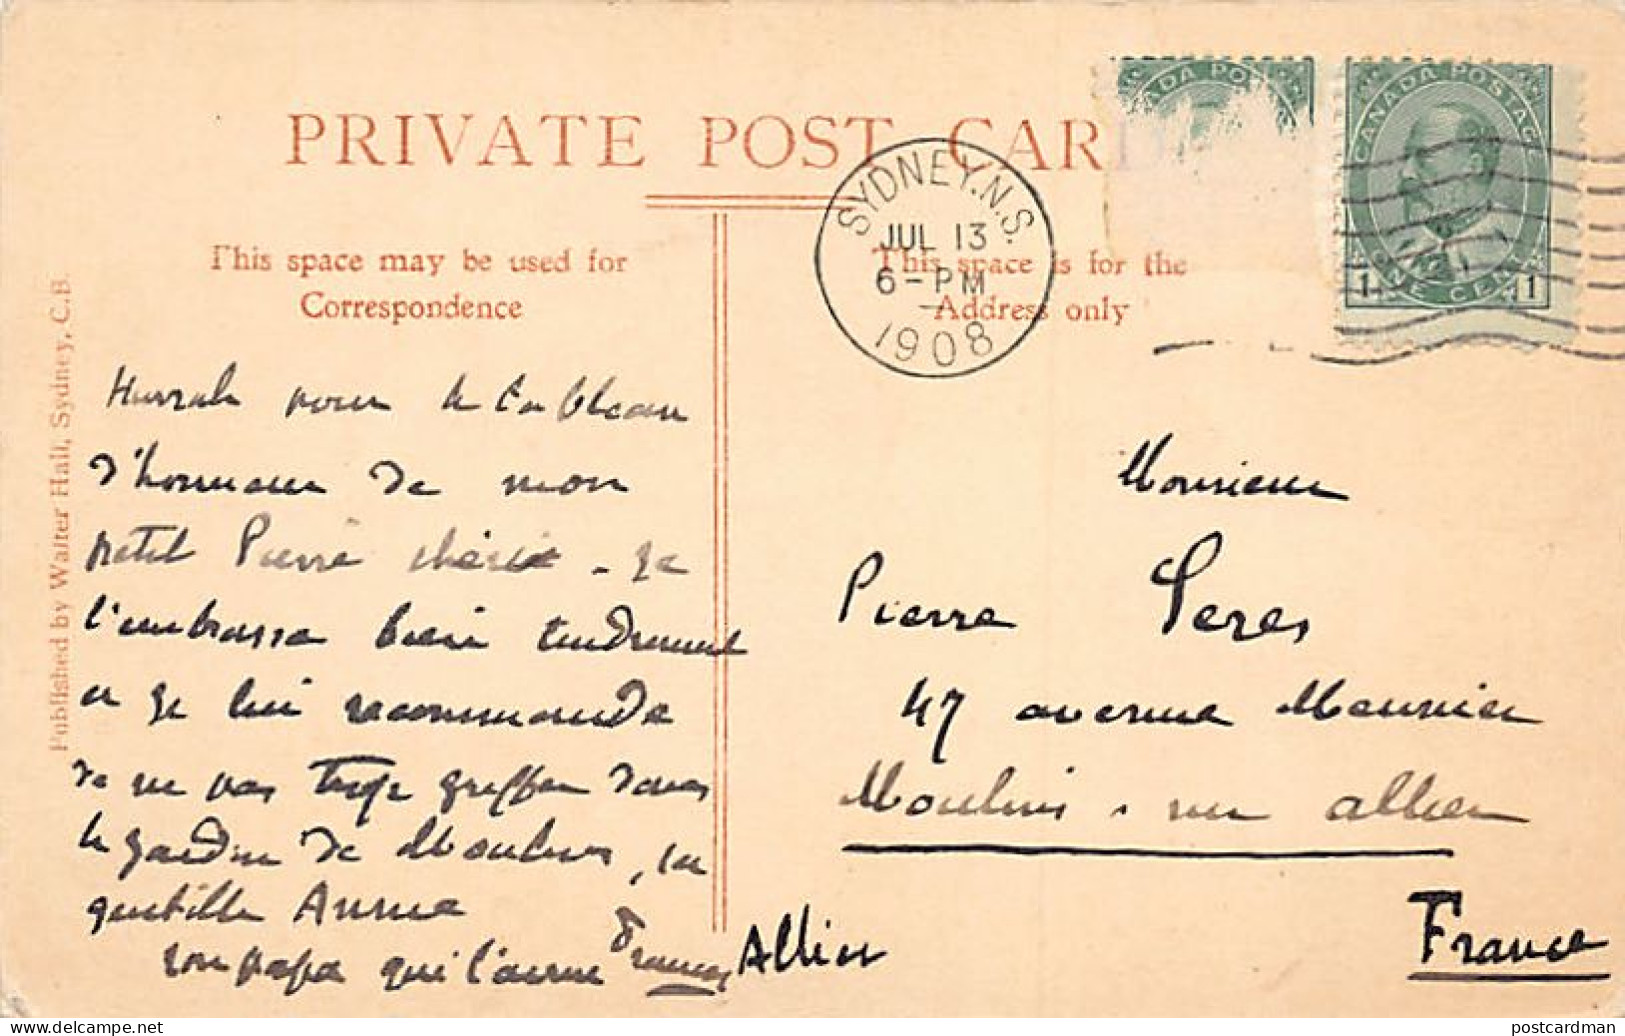 PRIVATE POST CARD
CANADA POSTAGE
CANADA POSTAGE
1 ONE CENT 1
SYDNEY. N.S.
JUL 13
6-PM
1908
This space may be used for
Correspondence
This space is for the
Address only
Published by Walter Hall, Sydney, C.B.
Hurrah pour le tableau
d'honneur de mon
petit Pierre chéri - Je
l'embrasse bien tendrement
et je lui recommande
de ne pas trop griffer dans
le jardin de Moulins, sa
gentille Anne
son papa qui l'aime
Monsieur
Pierre Peres
47 avenue Meunier
Moulins - sur allier
Allier
France
postcardman